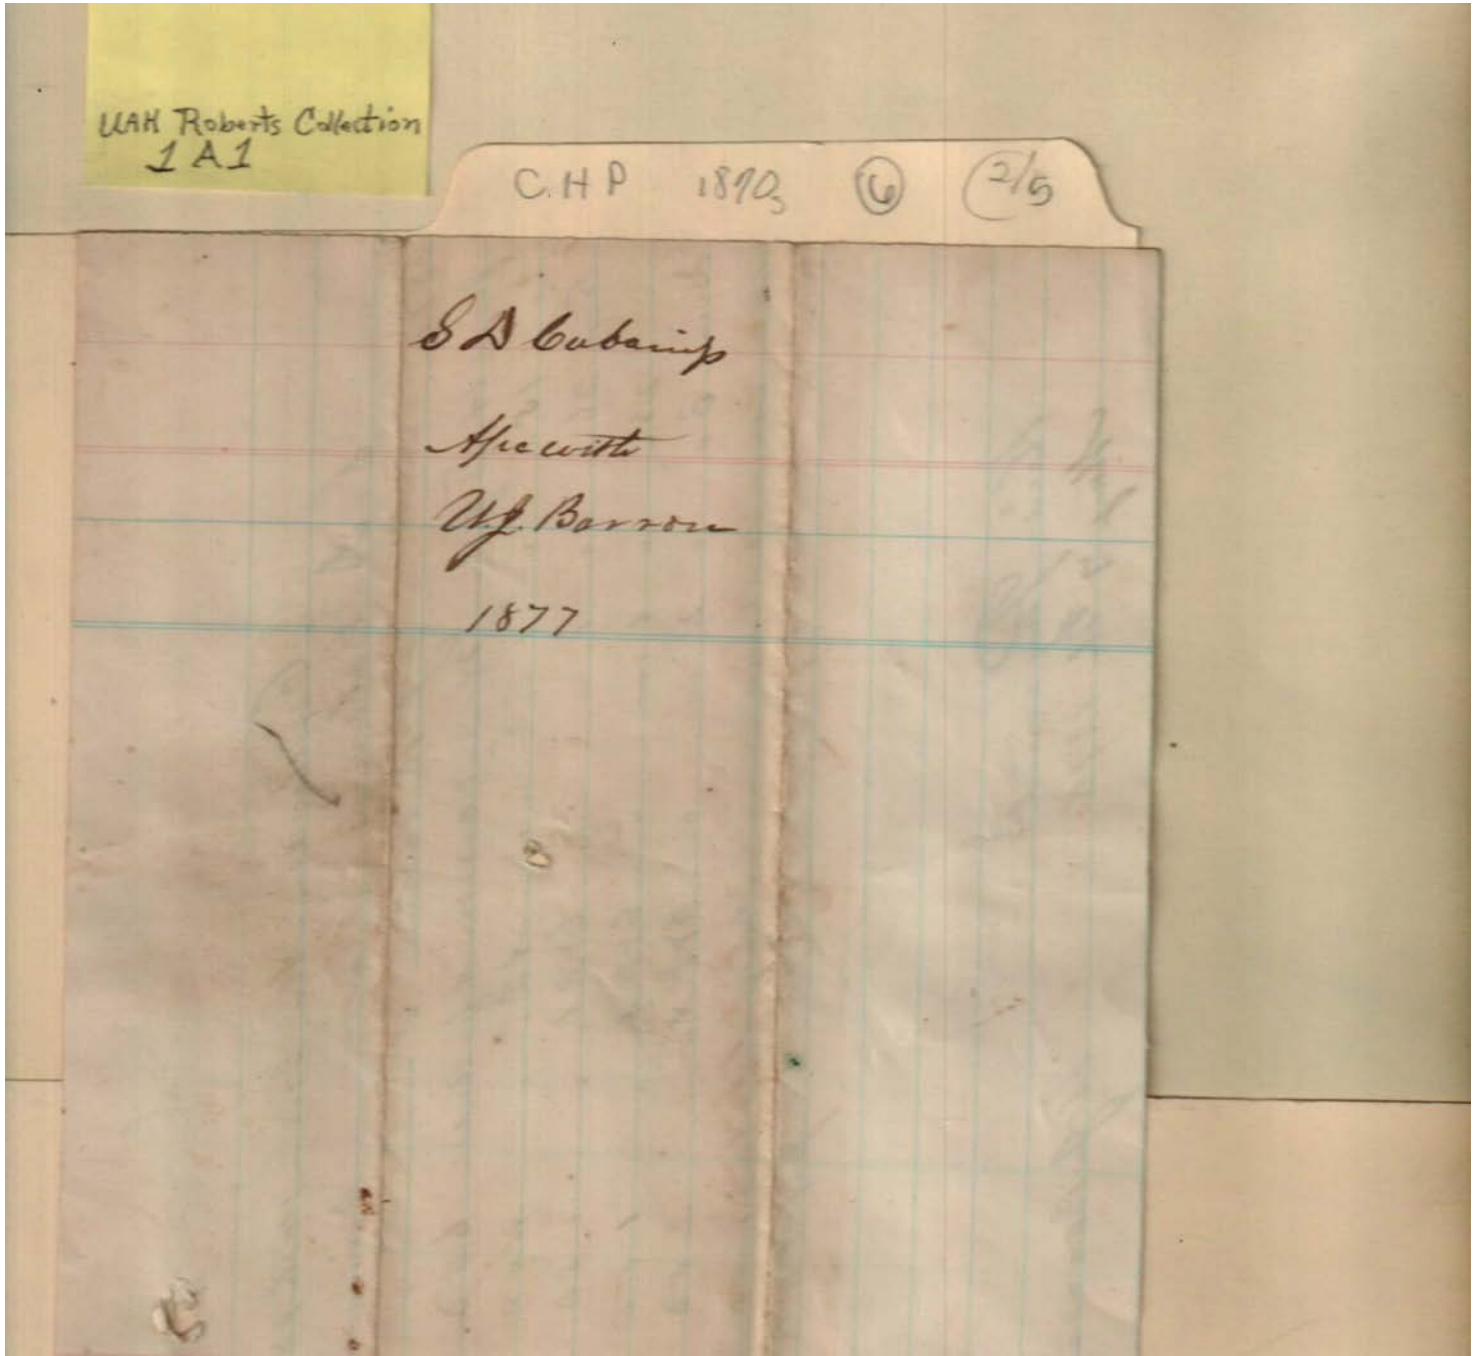 UAH Roberts Collection
1 A 1
C.H.P 1870s 6 2/5
S D Cabaniss
A/c with
U.J. Barron
1877